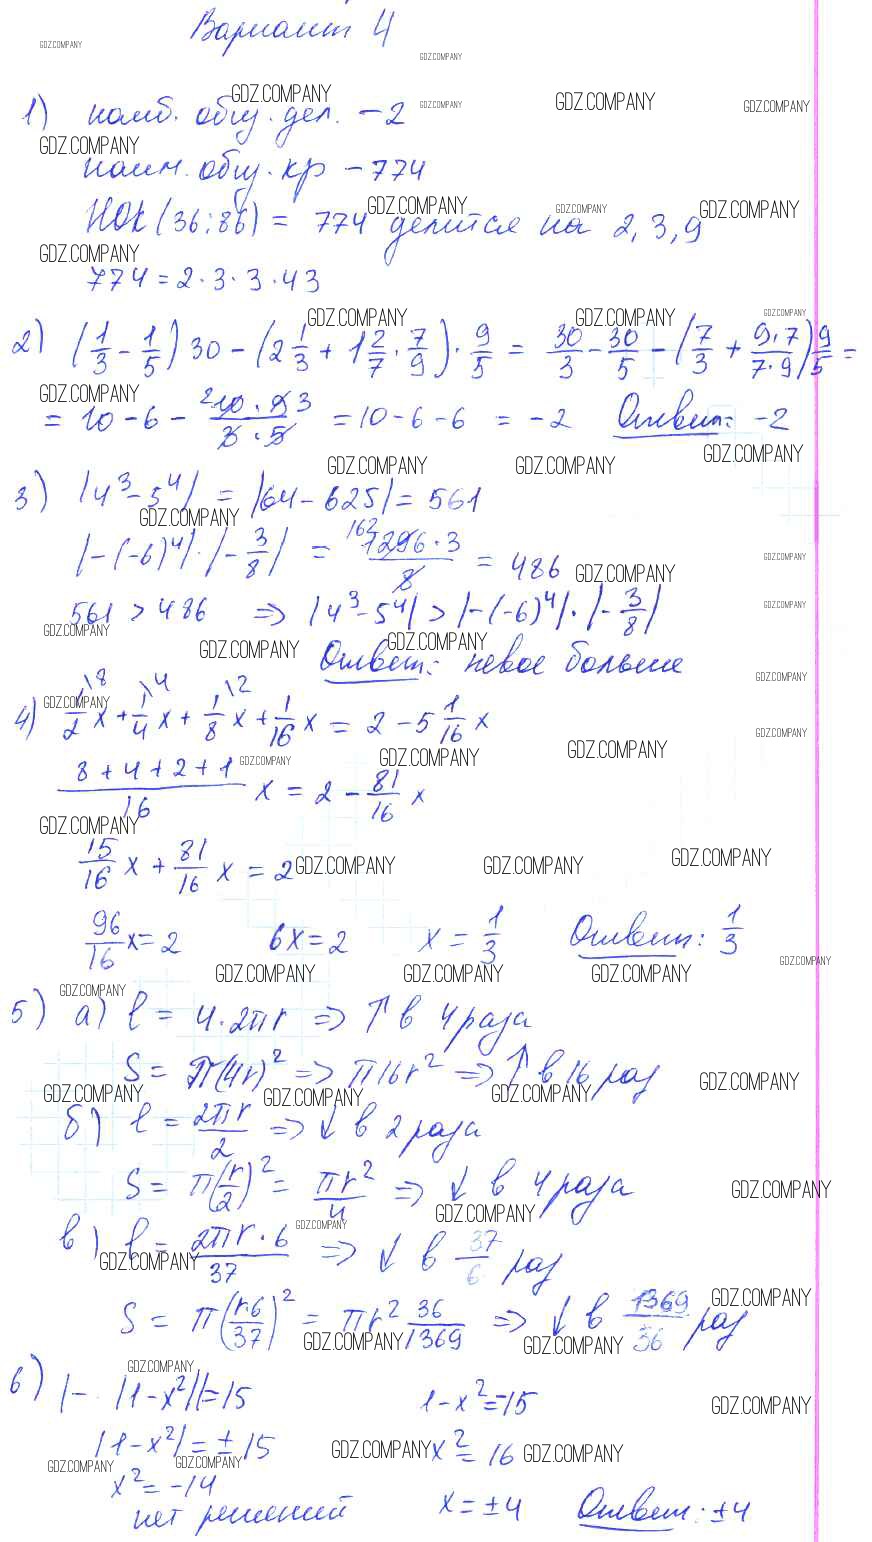 Вариант 4
1) наиб. общ. дел. – 2
наим. общ. кр – 774
НОК (36; 86) = 774 делится на 2, 3, 9
774 = 2·3·3·43
2) (1/3 – 1/5) 30 – (2 1/3 + 1 2/7 · 7/9) · 9/5 = 30/3 – 30/5 – (7/3 + 9·7/7·9) 9/5 =
= 10 – 6 – 10·9/3·5 = 10 – 6 – 6 = –2 Ответ: –2
3) |4³ – 5⁴| = |64 – 625| = 561
|–(–6)⁴| · |–3/8| = 1296·3/8 = 486
561 > 486 => |4³ – 5⁴| > |–(–6)⁴| · |–3/8|
Ответ: левое больше
4) 1/2 x + 1/4 x + 1/8 x + 1/16 x = 2 – 5 1/16 x
8 + 4 + 2 + 1/16 x = 2 – 81/16 x
15/16 x + 81/16 x = 2
96/16 x = 2 6x = 2 x = 1/3 Ответ: 1/3
5) а) l = 4·2πr => ↑ в 4 раза
S = π(4r)² => π16r² => ↑ в 16 раз
б) l = 2πr/2 => ↓ в 2 раза
S = π(r/2)² = πr²/4 => ↓ в 4 раза
в) l = 2πr·6/37 => ↓ в 37/6 раз
S = π(r·6/37)² = πr² 36/1369 => ↓ в 1369/36 раз
6) |– |1–x²|| = 15 1–x² = –15
|1–x²| = ±15 x² = 16
x² = –14
нет решений x = ±4 Ответ: ±4
GDZ.COMPANY